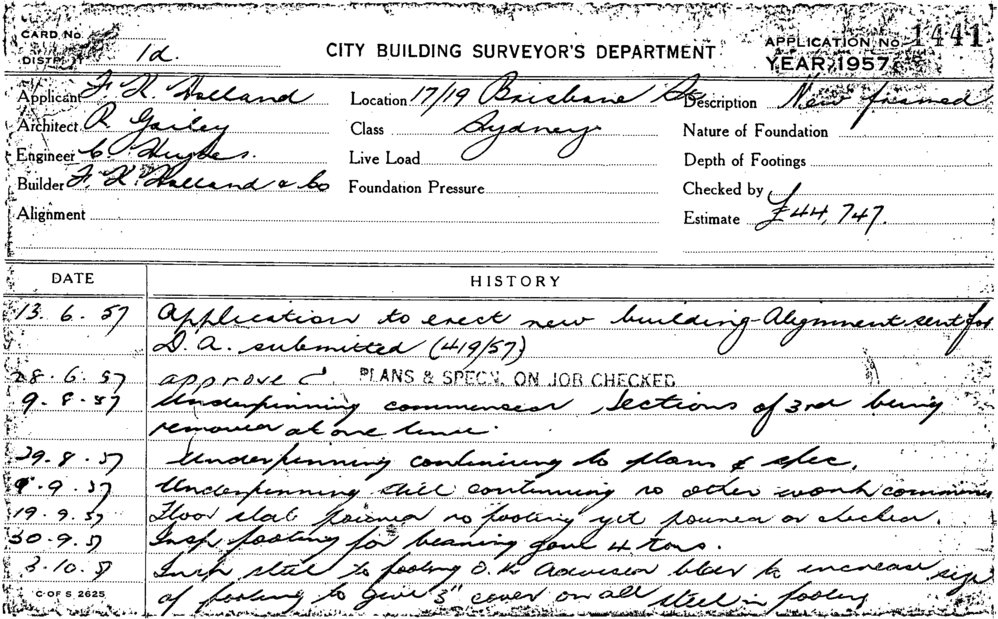 CARD No.
DISTRICT 1d.
CITY BUILDING SURVEYOR'S DEPARTMENT
APPLICATION No. 1441
YEAR, 1957
Applicant F. K. Holland
Location 17/19 Brisbane St
Description New framed
Architect R Gailey
Class Sydney
Nature of Foundation
Engineer C. Hughes.
Live Load
Depth of Footings
Builder F. K. Holland & Co
Foundation Pressure
Checked by
Alignment
Estimate £44,747.
DATE HISTORY
13. 6. 57 Application to erect new building - Alignment sent for
D. A. submitted (419/57)
28. 6. 57 approved. PLANS & SPECN. ON JOB CHECKED
9. 8. 57 Underpinning commenced Sections of 3rd being
removed at one time.
29. 8. 57 Underpinning continuing to plans & spec.
9. 57 Underpinning still continuing no other work commenced
19. 9. 57 Floor slab poured no footing yet poured or checked.
30. 9. 57 Insp footing for bearing gave 4 tons.
3. 10. 57 Insp steel to footing O.K. Advised bldr to increase size
of footing to give 3" cover on all steel in footing
C OF S. 2625